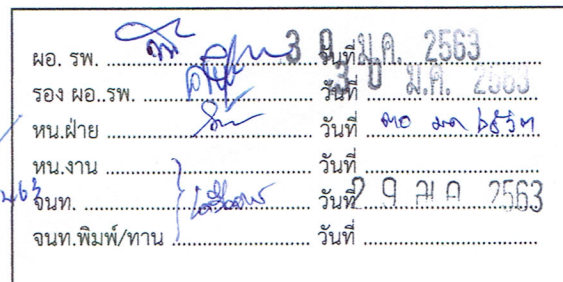 ผอ. รพ. วันที่ 30 ม.ค. 2563
รอง ผอ.รพ. วันที่ 30 ม.ค. 2563
หน.ฝ่าย วันที่ ๓๐ มค ๒๕๖๓
หน.งาน วันที่
จนท. วันที่ 29 ม.ค. 2563
จนท.พิมพ์/ทาน วันที่